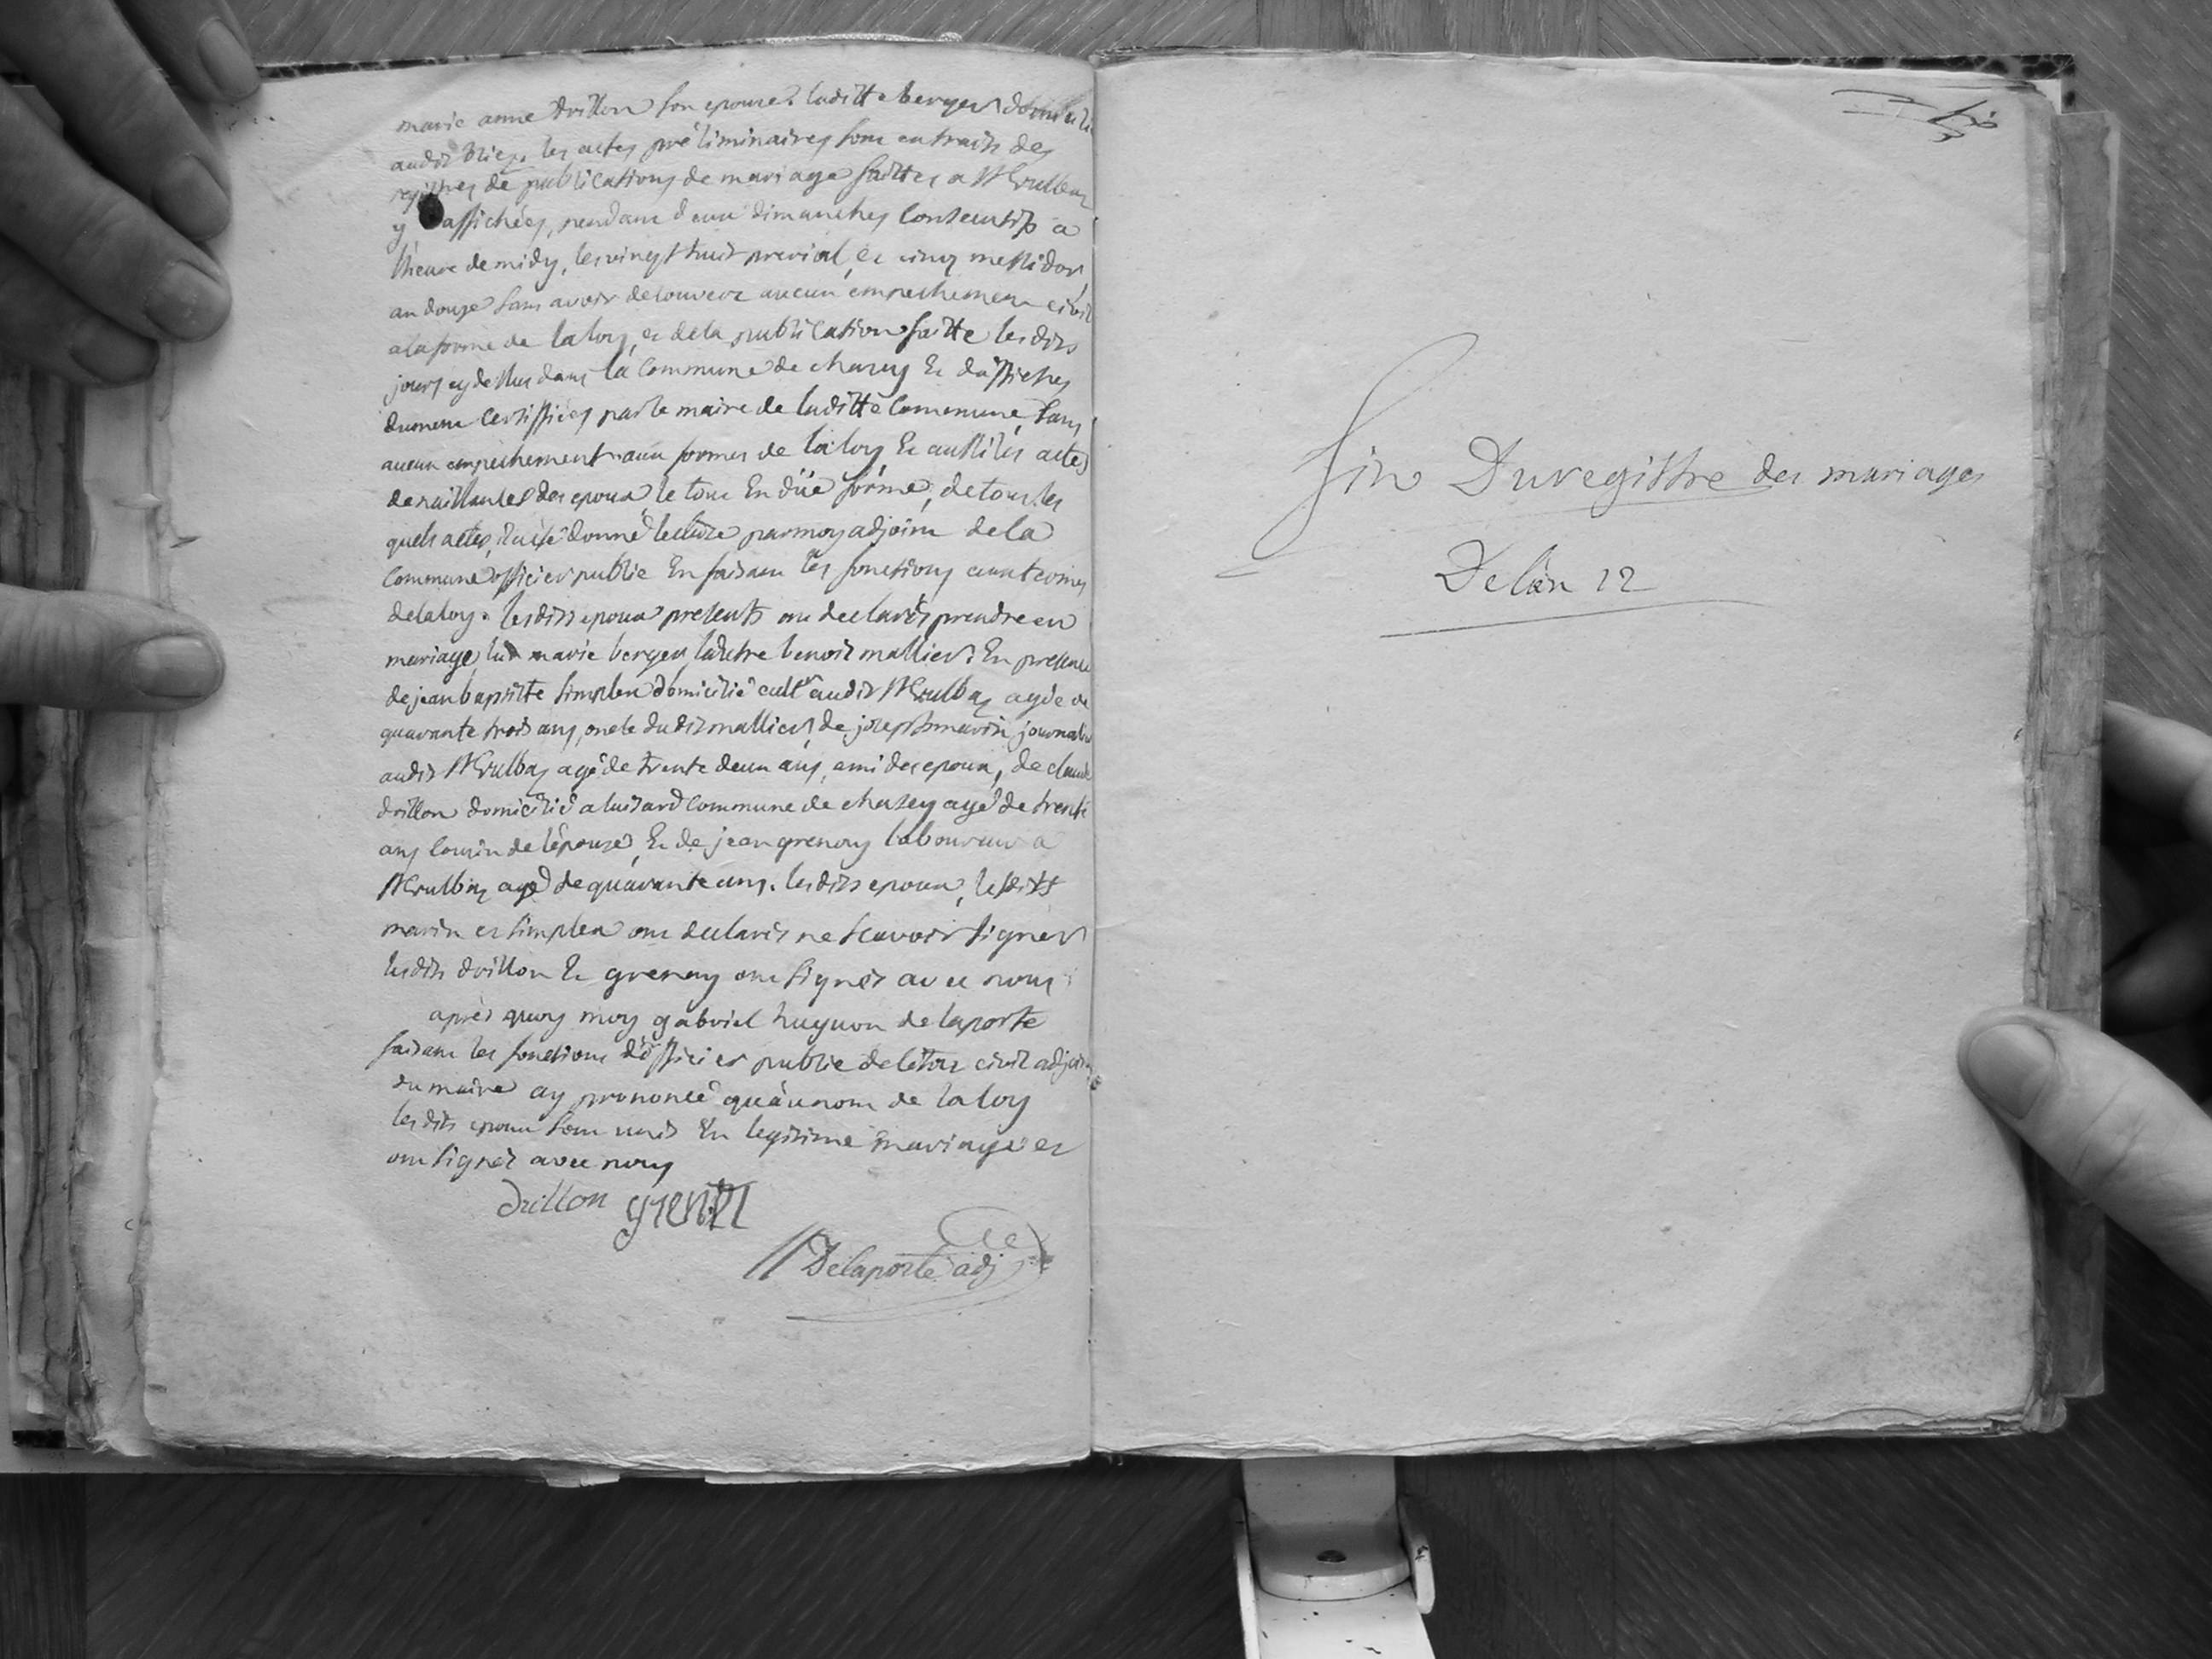 marie anne drillon son epouse. laditte berger domicilié
audit bliez. les actes préliminaires sont extraits des
registres de publications de mariage faittes a St Vulbaz
y affichées, pendant deux dimanches consecutifs a
l'heure de midy, les vingt huit prerial, et cinq messidor
an douze sans avoir decouvert aucun empechement civil
a la forme de la loy, et de la publication faitte les dits
jours cy dessus dans la commune de chazey Et d'affiches
dument certiffiées par le maire de laditte commune, sans
aucun empechement aux formes de la loy Et aussi les actes
de naissances des epoux, le tout En düe forme, de tous les
quels actes, il a été donné lecture par moy adjoint de la
commune officier public En faisant les fonctions aux termes
de la loy. lesdits epoux presents ont declarés prendre en
mariage, lun marie berger, lautre benoit mallier. En presence
de jean baptiste simplex domicilié cultr audit St Vulbaz agé de
quarante trois ans, oncle dudit mallier, de joseph marin journalier
audit St Vulbaz agé de trente deux ans, ami des epoux, de claude
drillon domicilié a luisard commune de chazey agé de trente
ans cousin de l'épouse, Et de jean grenoy laboureur a
St Vulbaz agé de quarante ans. les dits epoux, lesdits
marin et simplex ont declarés ne scavoir signer
lesdits drillon Et grenoy ont signés avec nous
après quoy moy gabriel huguon delaporte
faisant les fonctions d'officier public de l'état civil adjoint
du maire ay prononcé qu'au nom de la loy
les dits epoux sont unis En legitime mariage et
ont signés avec nous
drillon
Delaporte adj
fin Du registre des mariages
De l'an 12